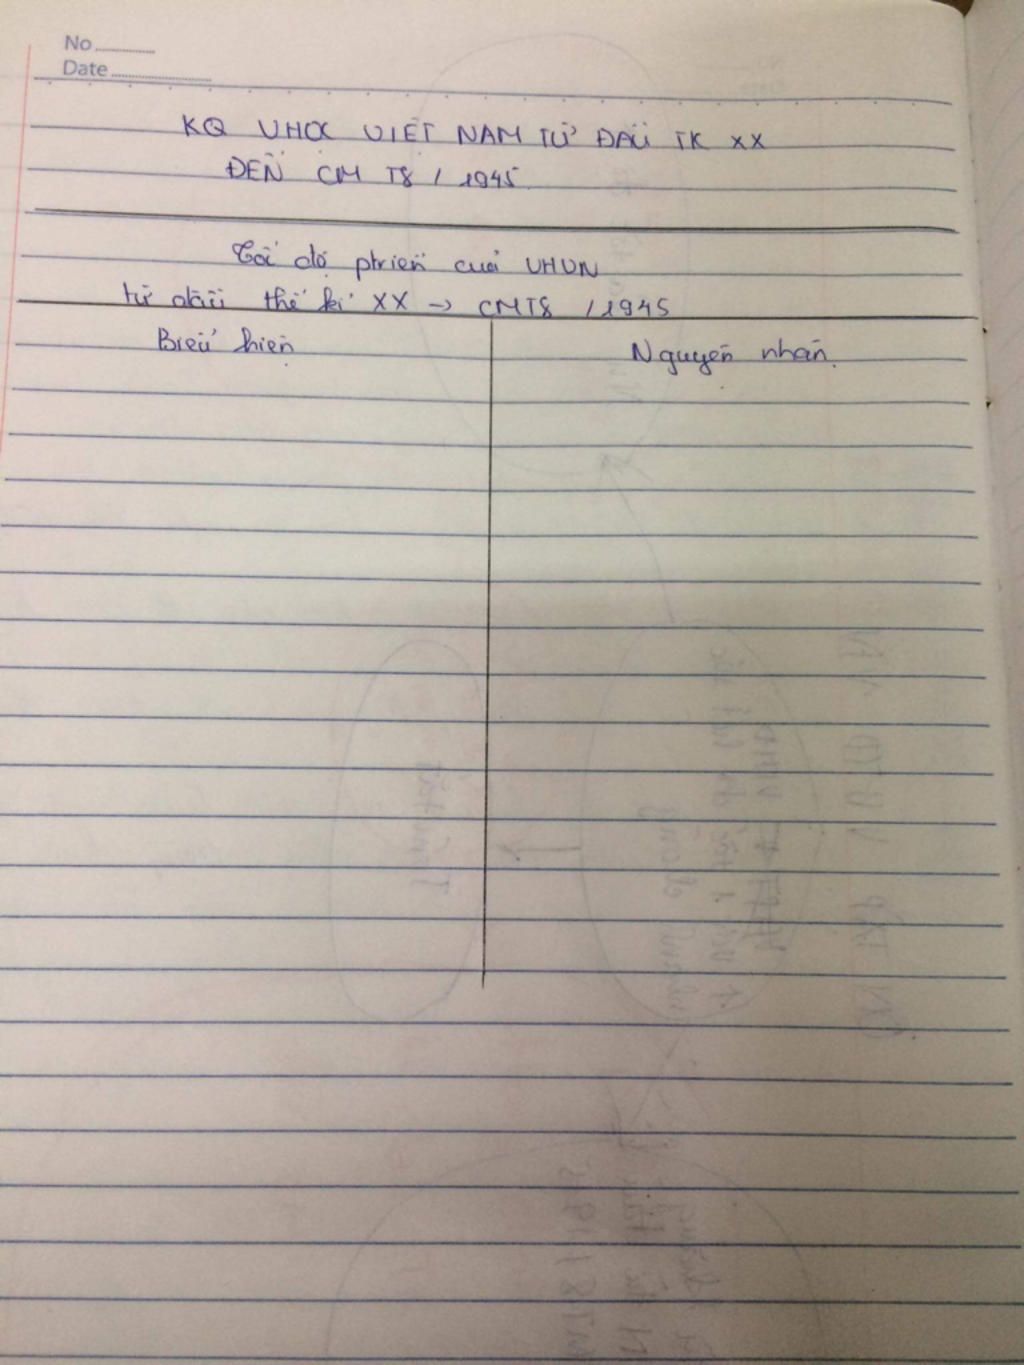 No
Date
KQ VHỌC VIỆT NAM TỪ ĐẦU TK XX
ĐẾN CM T8 / 1945
Tốc độ ptriển của VHVN
từ đầu thế kỉ XX → CMT8 / 1945
Biểu hiện
Nguyên nhân